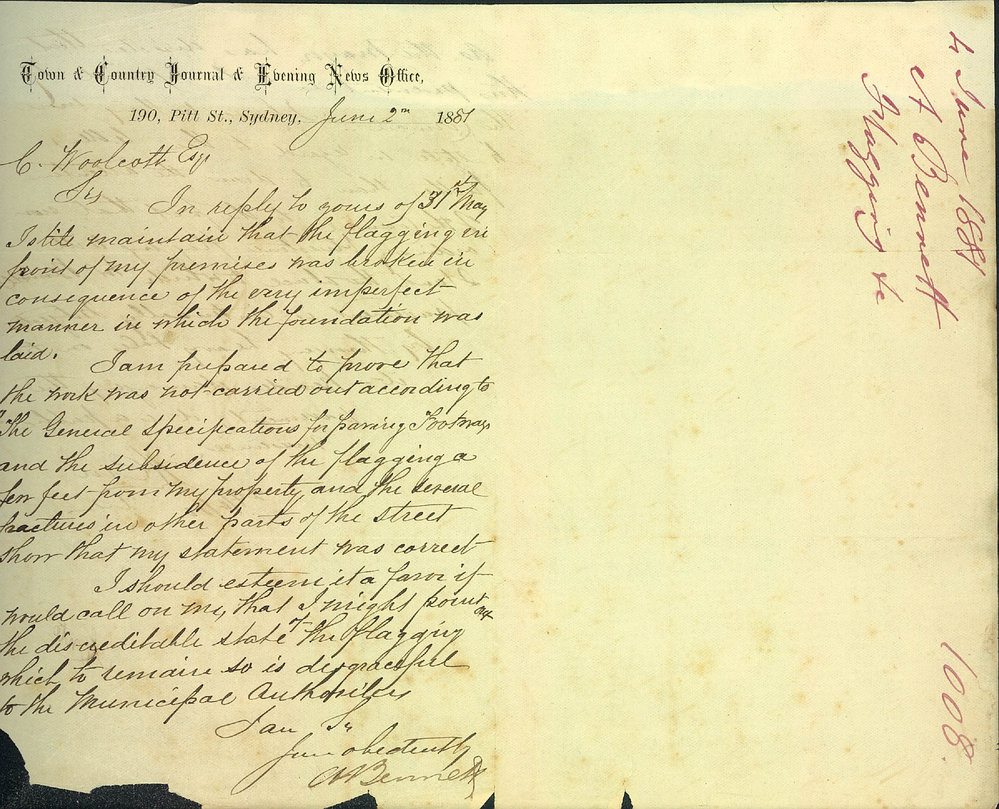 Town & Country Journal & Evening News Office,
190, Pitt St., Sydney, June 2nd 1881
C. Woolcott Esq
Sir
In reply to yours of 31st May
I stile maintain that the flagging in
front of my premises was broken in
consequence of the very imperfect
manner in which the foundation was
laid.
I am prepared to prove that
the work was not carried out according to
"The General Specifications for paving Footways
and the subsidence of the flagging a
few feet from my property, and the several
fractures in other parts of the street
show that my statement was correct
I should esteem it a favor if
would call on me, that I might point out
the discreditable state of the flagging
which to remain so is disgraceful
to the Municipal Authorities
I am Sir
Your obediently
A Bennett
4 June 1881
A Bennett
Flagging &c
1008.